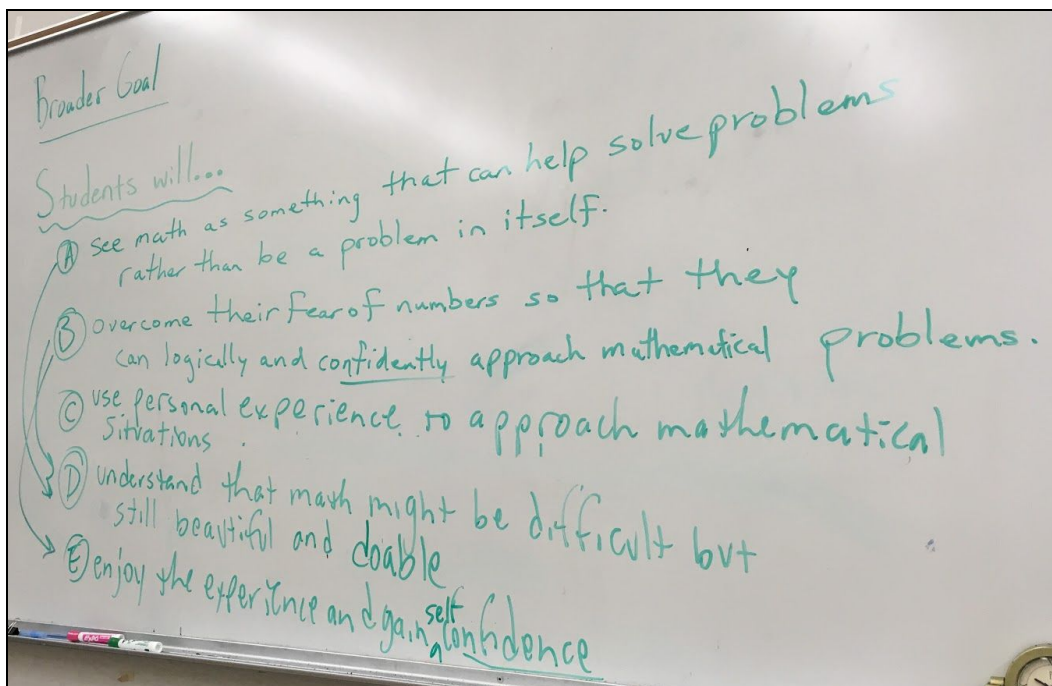 Broader Goal
Students will...
A see math as something that can help solve problems
rather than be a problem in itself.
B overcome their fear of numbers so that they
can logically and confidently approach mathematical problems.
C use personal experience to approach mathematical
situations.
D understand that math might be difficult but
still beautiful and doable
E enjoy the experience and gain self confidence